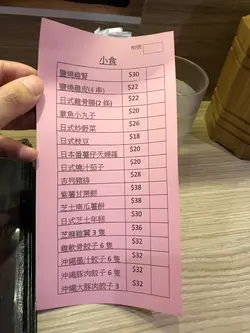 小食
鹽燒雞腎 $30
鹽燒雞皮(4串) $22
日式雞骨腸(2條) $22
章魚小丸子 $20
日式炒野菜 $26
日式枝豆 $18
日本番薯仔天婦羅 $20
日式燒汁茄子 $20
吉列豬排 $28
紫薯甘栗餅 $38
芝士南瓜薯餅 $38
日式芝士年糕 $30
芝麻雞翼3隻 $36
雞軟骨餃子6隻 $32
沖繩墨汁餃子6隻 $32
沖繩豚肉餃子6隻 $32
沖繩大豚肉餃子3 $32